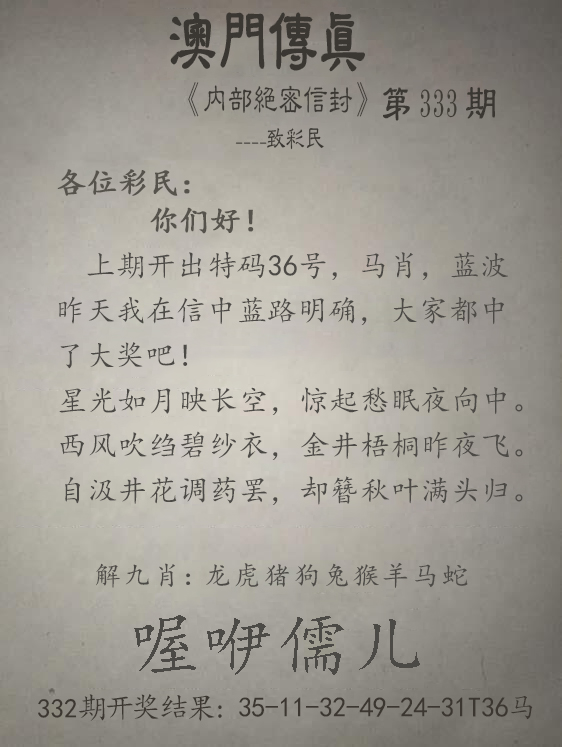 澳門傳眞
《内部絕密信封》第333期
----致彩民
各位彩民：
你们好！
上期开出特码36号，马肖，蓝波
昨天我在信中蓝路明确，大家都中
了大奖吧！
星光如月映长空，惊起愁眠夜向中。
西风吹绉碧纱衣，金井梧桐昨夜飞。
自汲井花调药罢，却簪秋叶满头归。
解九肖：龙虎猪狗兔猴羊马蛇
喔咿儒儿
332期开奖结果：35-11-32-49-24-31T36马